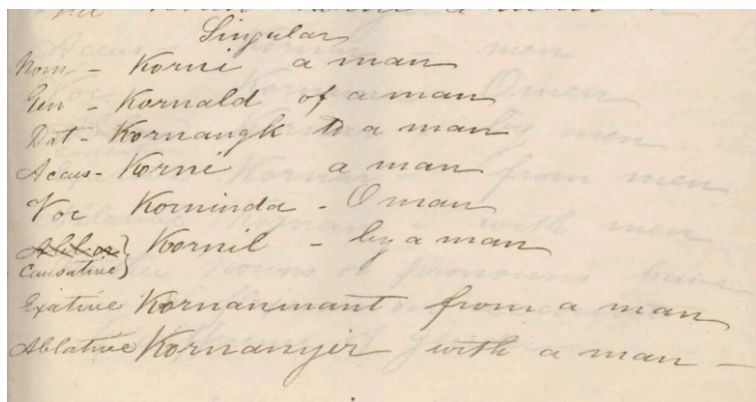 Singular
Nom - Korni a man
Gen - Kornald of a man
Dat - Kornangk to a man
Accus - Korni a man
Voc Korninda - O man
Abl. or } Kornil - by a man
Causative
Exative Kornanmant from a man
Ablative Kornanyir with a man -